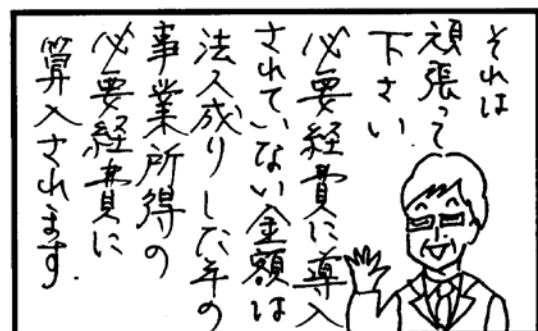 それは
頑張って
下さい
必要経費に導入
されていない金額は
法人成りした年の
事業所得の
必要経費に
算入されます.